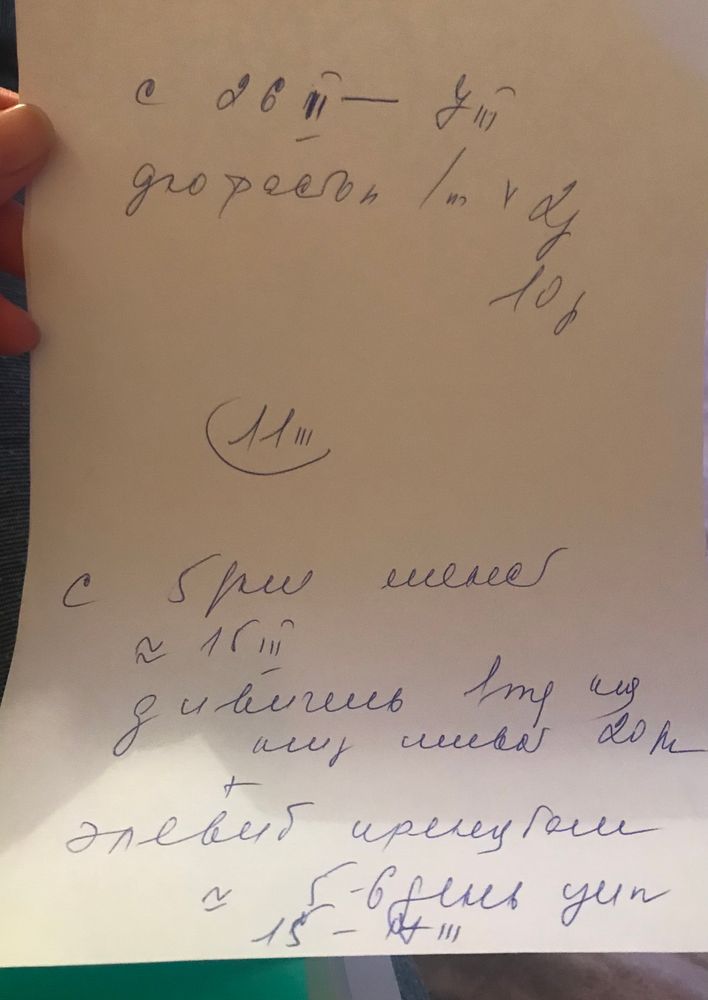 с 26 II — 7 III
дюфастон 1т х 2р
10 р
11 III
с 5 дня
≈ 15 III
дивигель 1 пд на
20 дн
+
элевит пренатал
≈ 5-6 день цик
15 – III